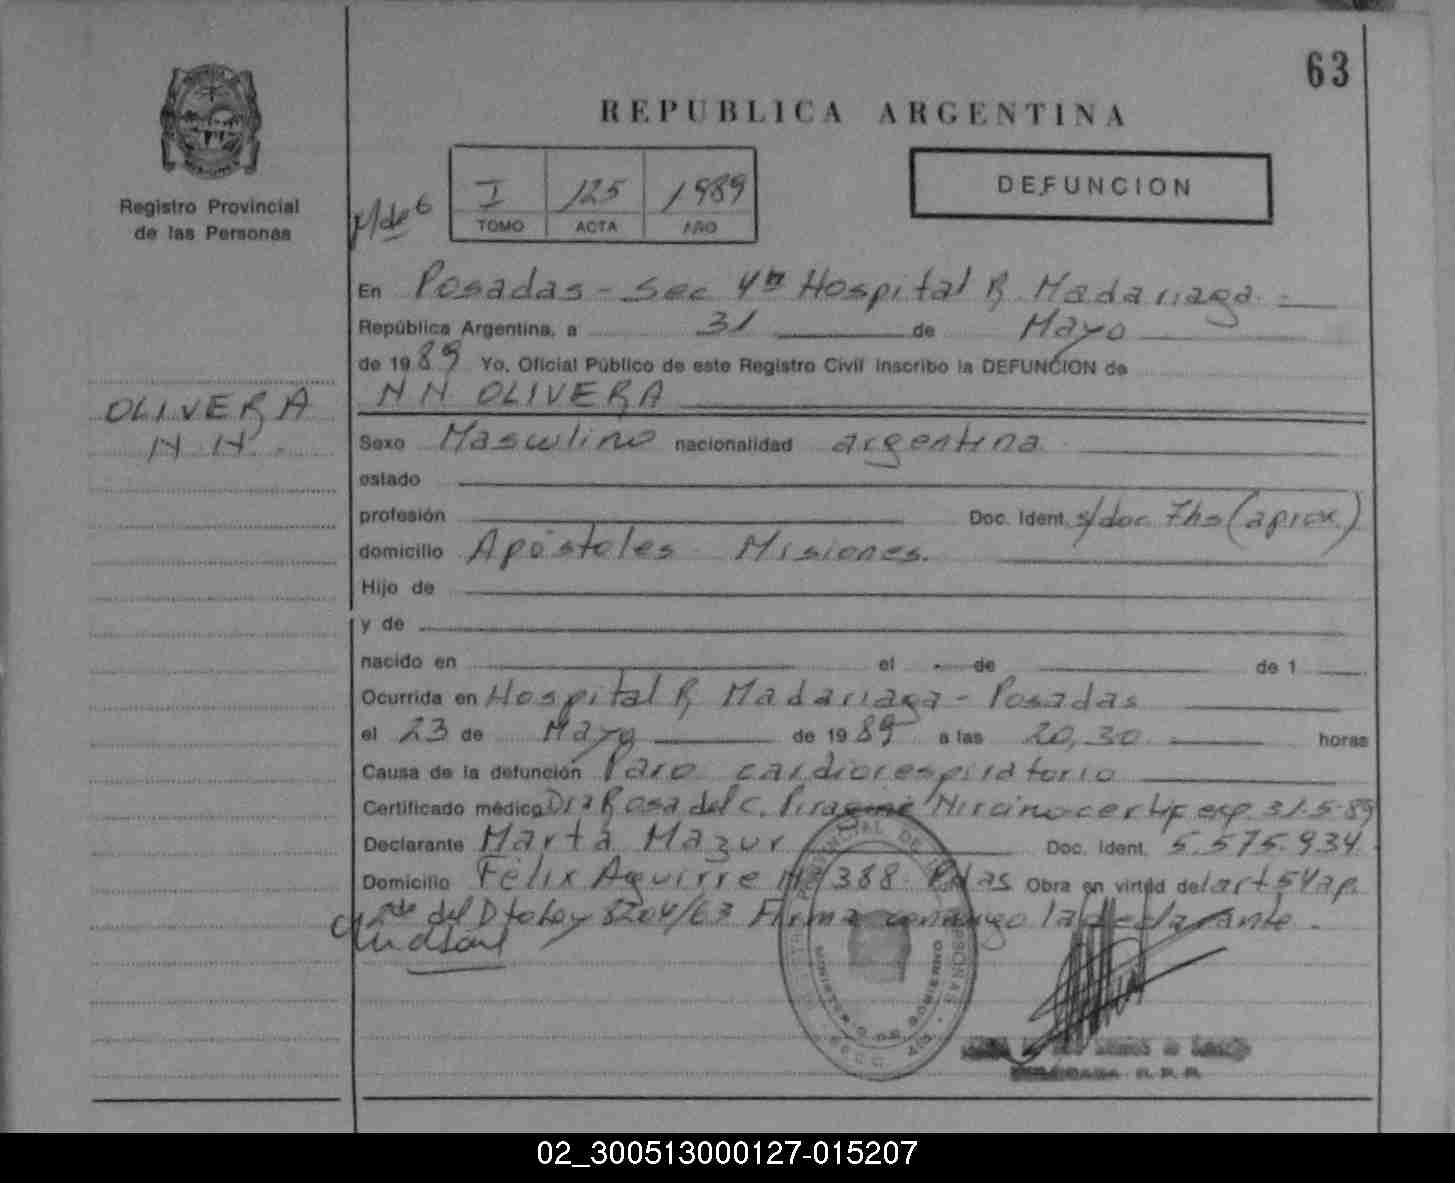 63
REPUBLICA ARGENTINA
Registro Provincial
de las Personas
I 125 1989
TOMO ACTA AÑO
DEFUNCION
En Posadas - Sec 4ta Hospital R. Madariaga -
República Argentina, a 31 de Mayo
de 1989 Yo, Oficial Público de este Registro Civil inscribo la DEFUNCION de
OLIVERA
N N.
N N OLIVERA
Sexo Masculino nacionalidad argentina
estado
profesión Doc. Ident. s/doc 7hs (aprox.)
domicilio Apóstoles Misiones.
Hijo de
y de
nacido en el de de 1
Ocurrida en Hospital R. Madariaga - Posadas
el 23 de Mayo de 1989 a las 20,30 horas
Causa de la defunción Paro cardiorespiratorio
Certificado médico Dra Rosa del C. certif exp. 31-5-89
Declarante Marta Mazur Doc. Ident. 5.575.934
Domicilio Félix Aguirre Nº 388 Pdas Obra en virtud del art 54 ap.
2do del Dto Ley 8204/63 Firma conmigo la declarante.
02_300513000127-015207